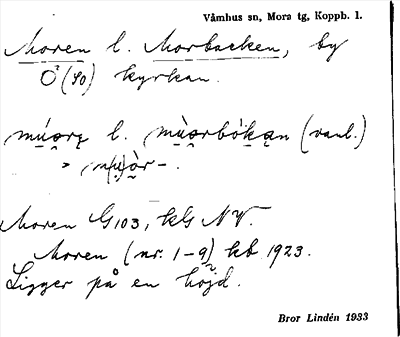 Våmhus sn, Mora tg, Koppb. l.
Moren l. Morbacken, by
Ö (SO) kyrkan.
múorę l. mùorbókąn (vanl.)
Moren G103, kls NV.
Moren (nr. 1-9) kb 1923.
Ligger på en höjd.
Bror Lindén 1933